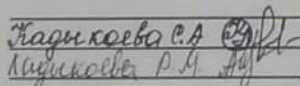 Кадыкоева С.А
Кадыкоева Р.М.